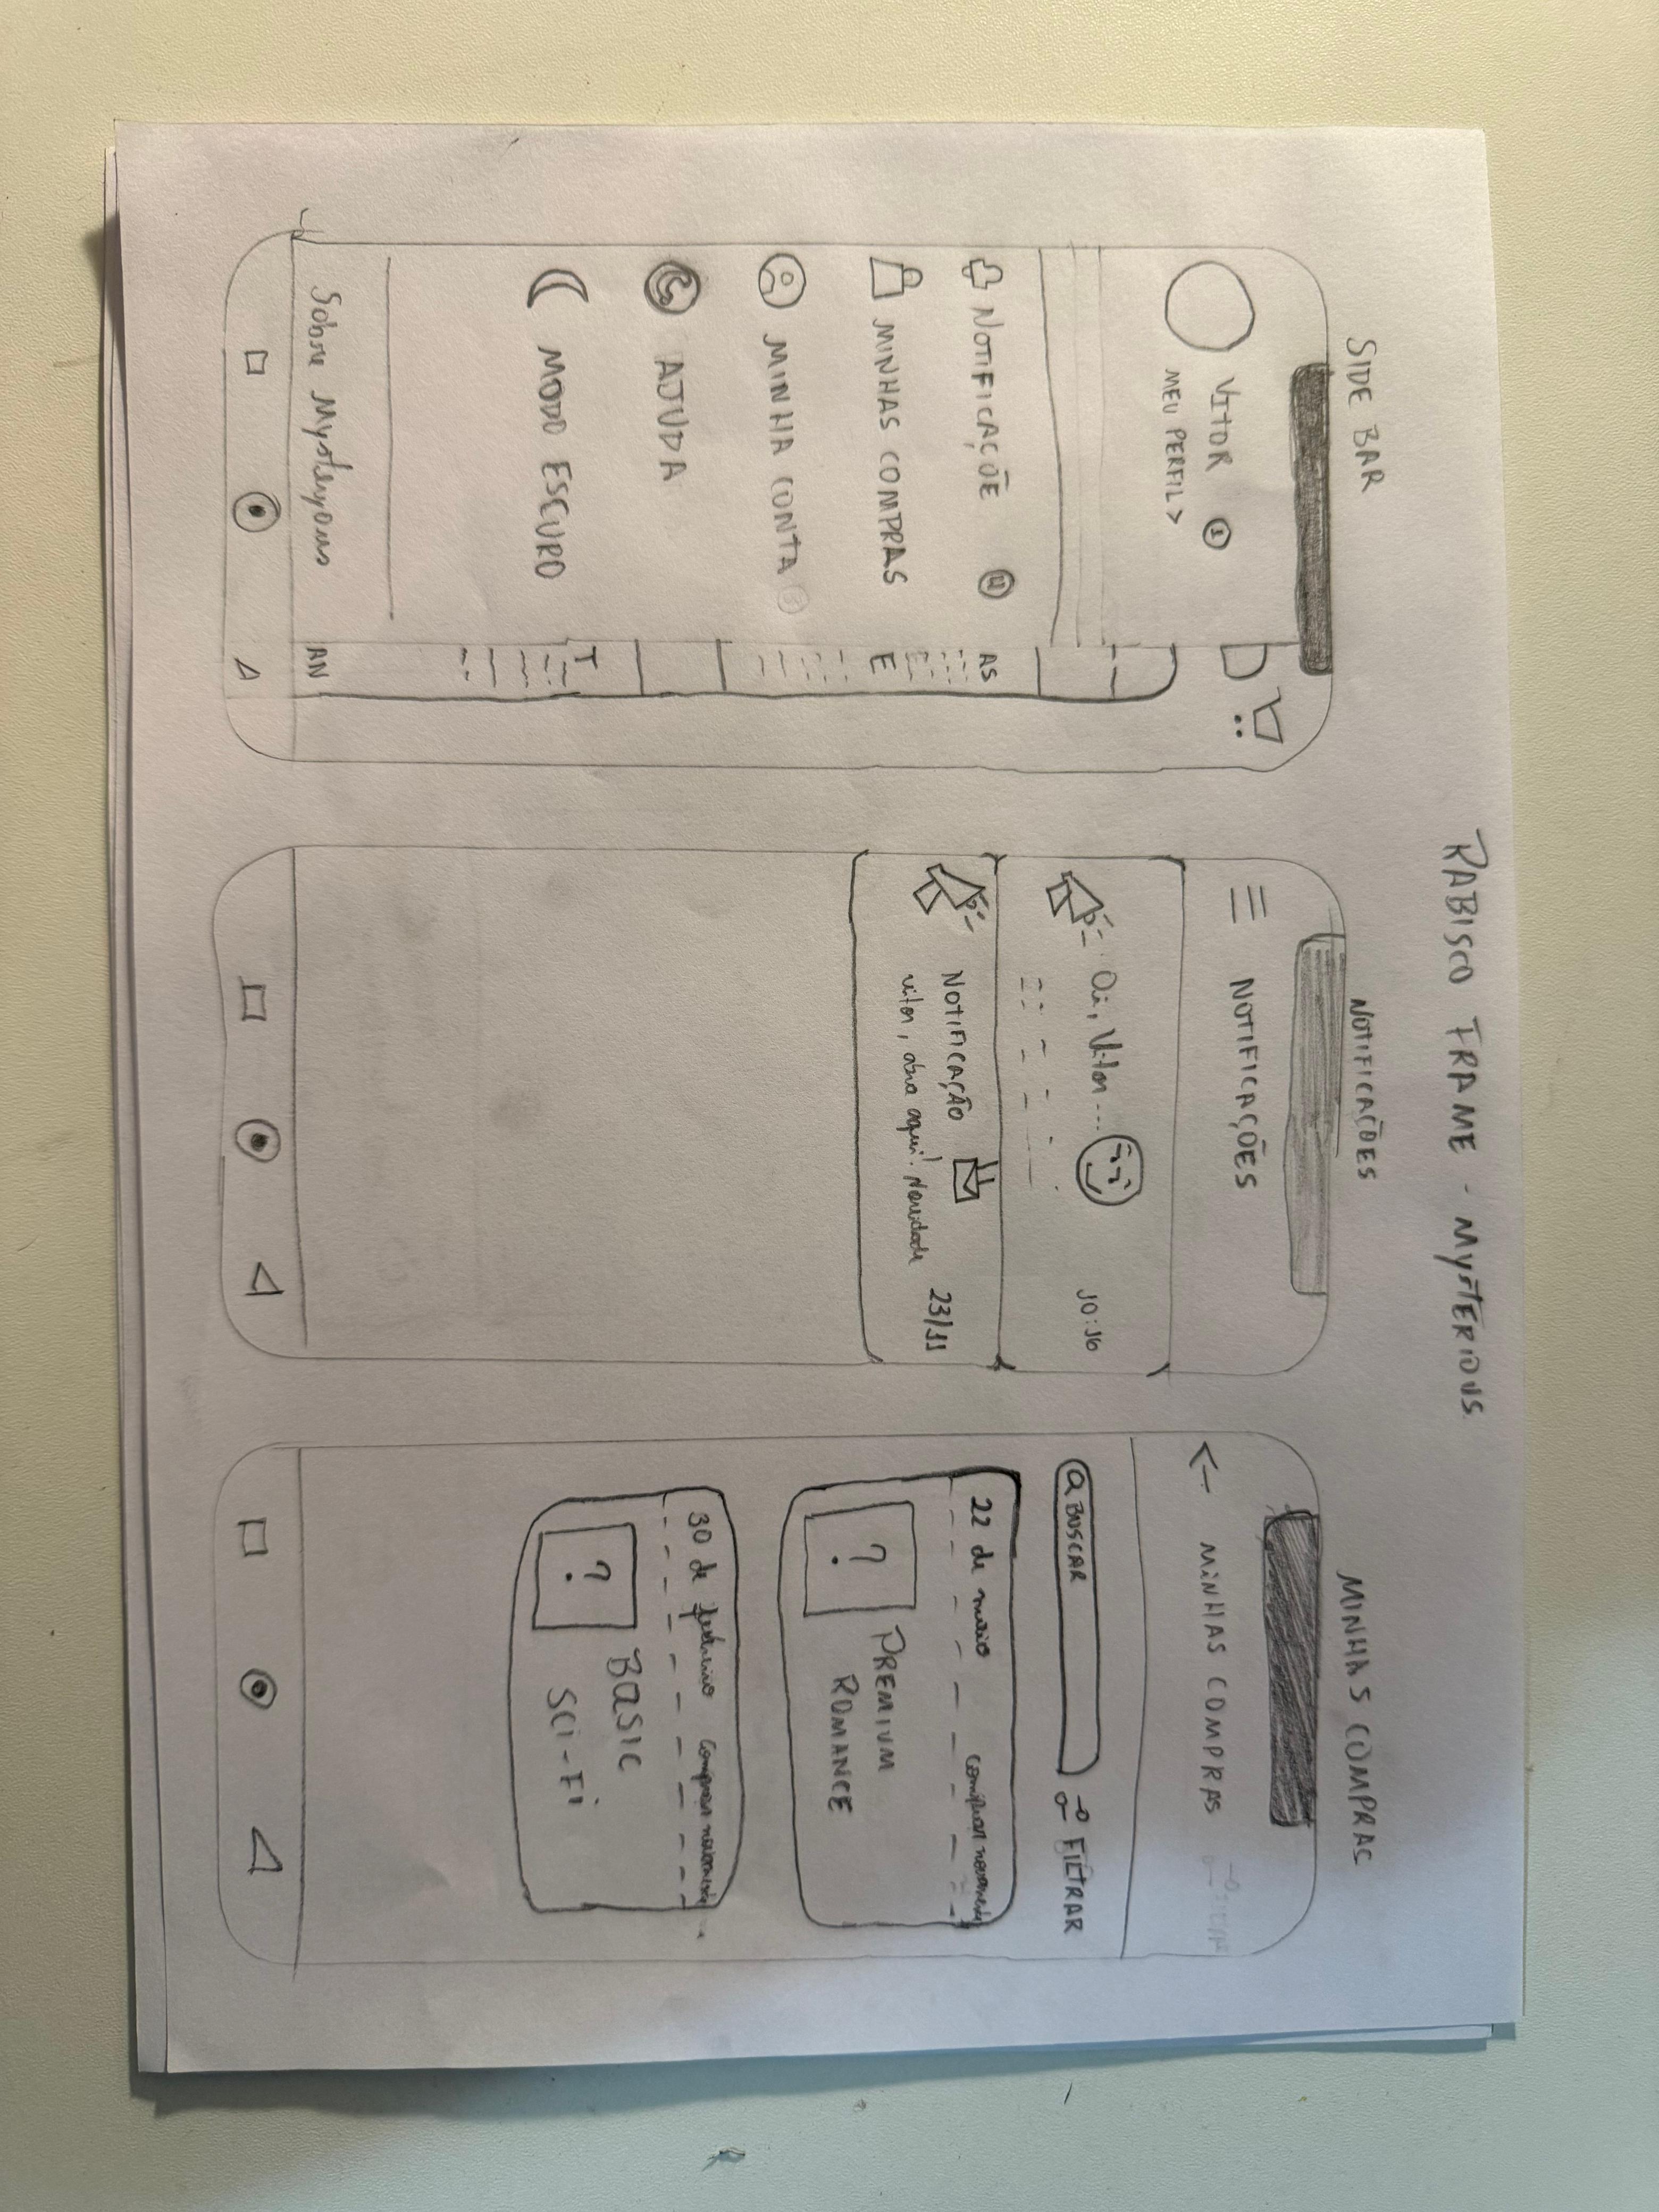 RABISCO FRAME - MYSTERIOUS
SIDE BAR
VITOR 1
MEU PERFIL >
NOTIFICAÇÕE
MINHAS COMPRAS
MINHA CONTA
AJUDA
MODO ESCURO
Sobre Mysteryous
AS
E
T
AN
NOTIFICAÇÕES
NOTIFICAÇÕES
Oi, Vitor...
10:16
NOTIFICAÇÃO
23/11
vitor, abra aqui! Novidade
MINHAS COMPRAS
MINHAS COMPRAS
BUSCAR
FILTRAR
22 de maio comprar novamente
?
PREMIUM
ROMANCE
30 de fevereiro comprar novamente
?
BASIC
SCi-Fi